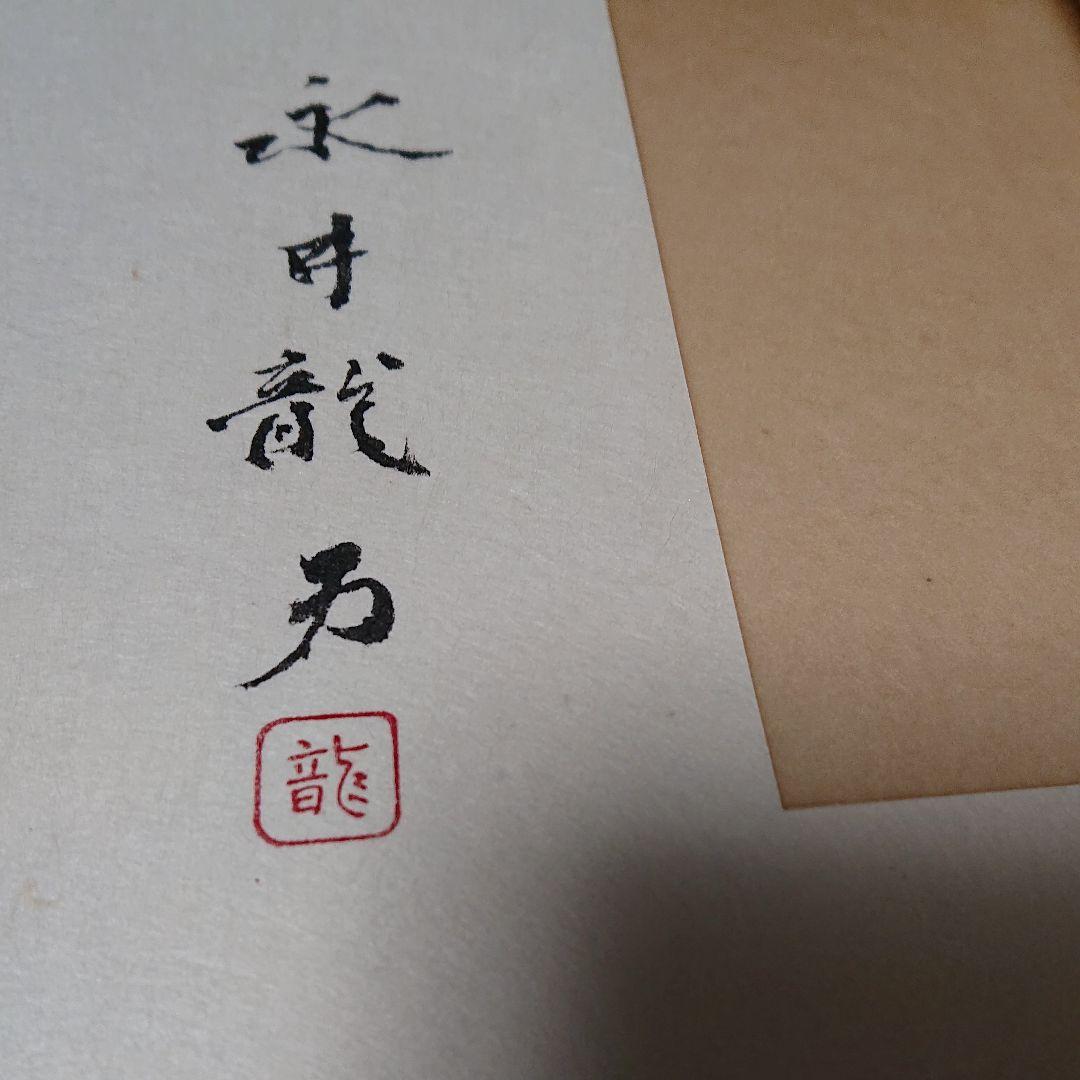 永井龍男
龍